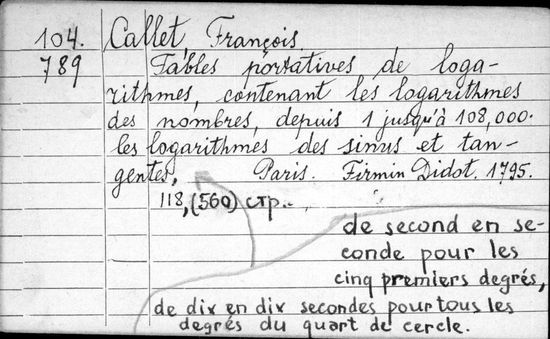 104. Callet, François.
789 Tables portatives de loga-
rithmes, contenant les logarithmes
des nombres, depuis 1 jusqu'à 108,000.
les logarithmes des sinus et tan-
gentes, Paris. Firmin Didot. 1795.
118, (560) стр..
de second en se-
conde pour les
cinq premiers degrés,
de dix en dix secondes pour tous les
degrés du quart de cercle.